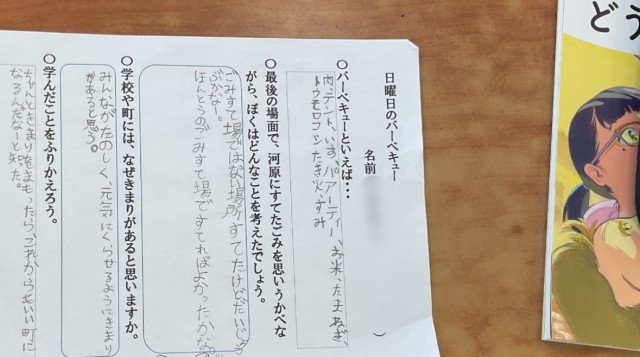 日曜日のバーベキュー
名前
)
○バーベキューといえば・・・
肉、テント、いす、パアーティー、お米、たまねぎ、
トウモロコシ、たき火、すみ
○最後の場面で、河原にすてたごみを思いうかべな
がら、ぼくはどんなことを考えたでしょう。
ごみすて場ではない場所にすてたけどだいじょう
ぶかなー。
ほんとうのごみすて場ですてればよかったかな。
○学校や町には、なぜきまりがあると思いますか。
みんながたのしく、元気にくらせるようにきまり
があると思う。
○学んだことをふりかえろう。
ちゃんときまりをまもったら、これからもいい町に
なるんだなーと知った。
どう